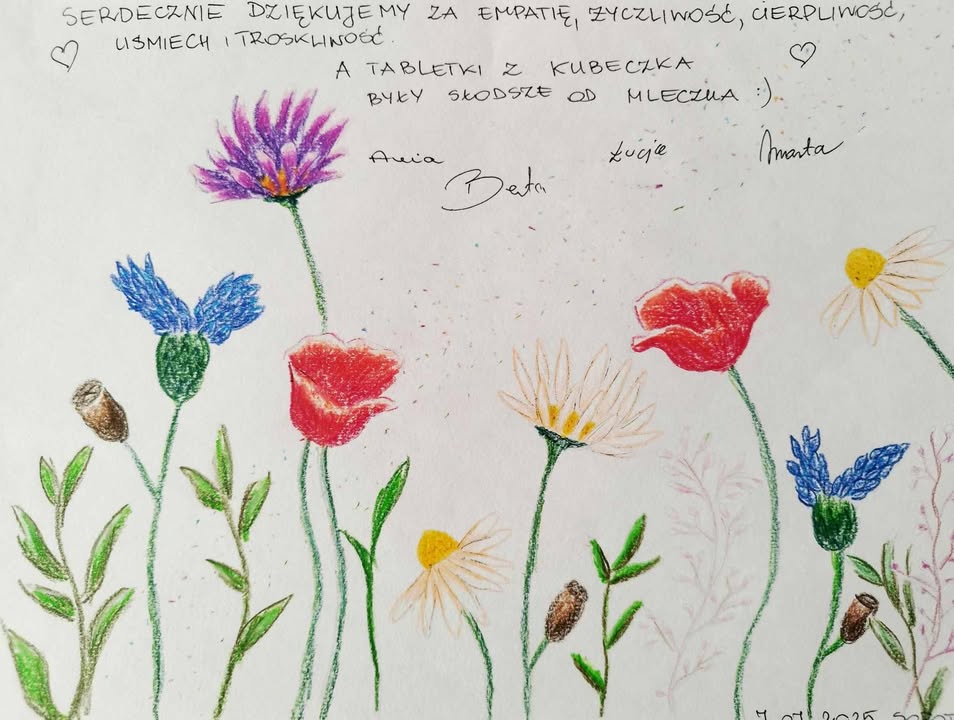 SERDECZNIE DZIĘKUJEMY ZA EMPATIĘ, ŻYCZLIWOŚĆ, CIERPLIWOŚĆ,
UŚMIECH I TROSKLIWOŚĆ.
A TABLETKI Z KUBECZKA
BYŁY SŁODSZE OD MLECZKA :)
Ania Łucja Marta
Berta
7.07.2025